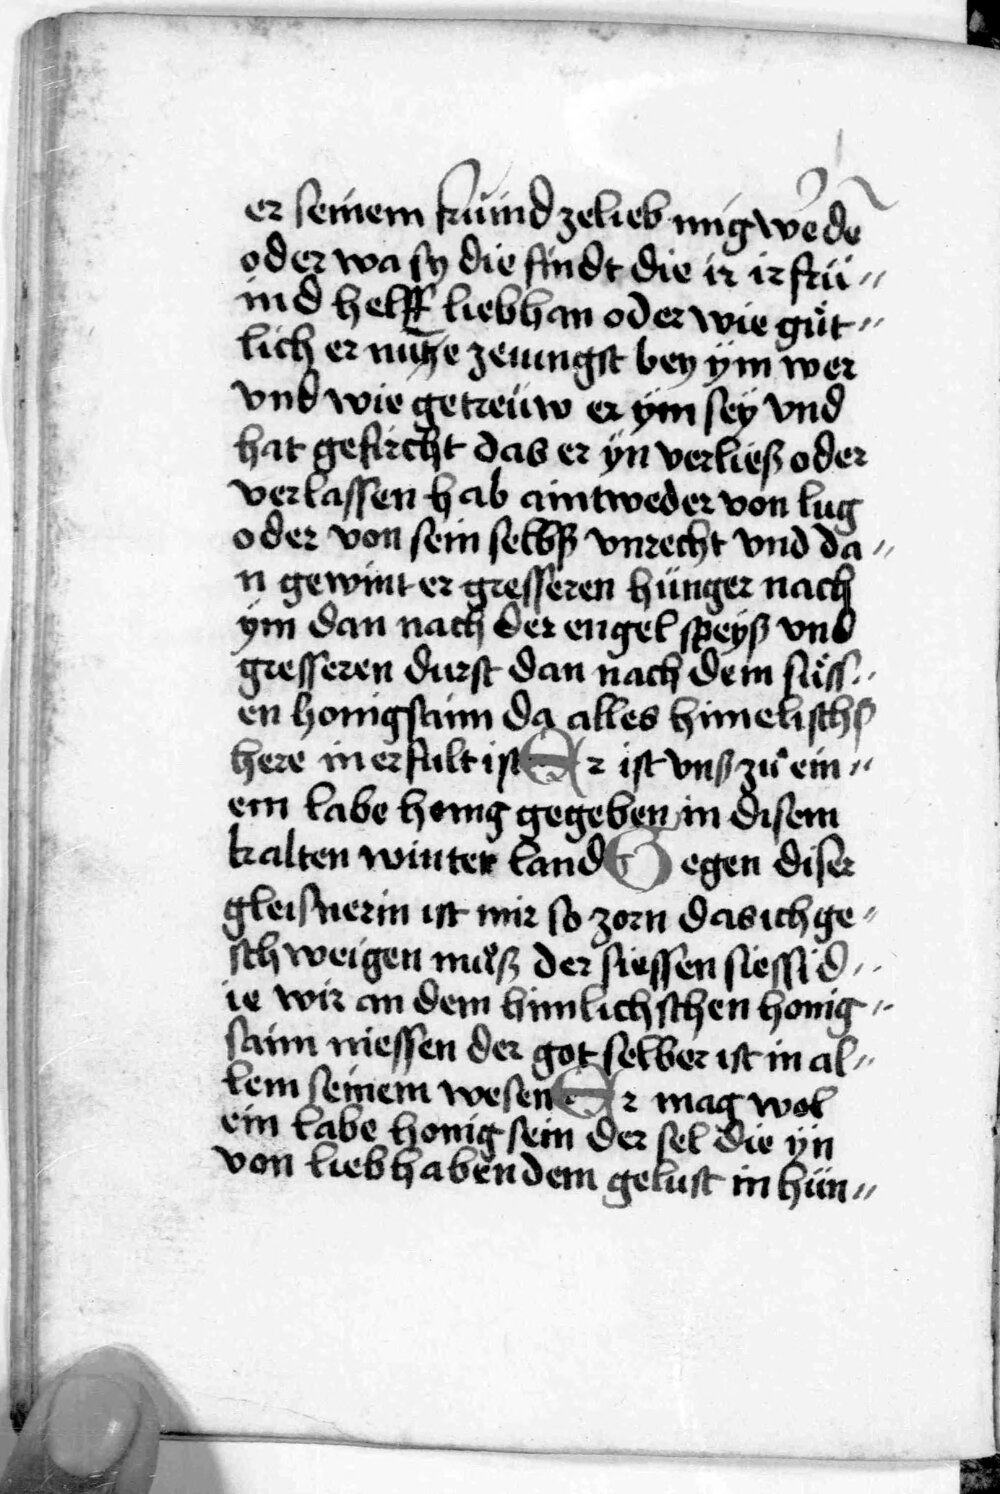 er seinem frúind zelieb mig werde
oder wa sy die findt die ir ir frú〃
ind helff liebhan oder wie gůt〃
lich er nutze zeiungst bey ÿm wer
vnd wie getreüw er ÿm seÿ vnd
hat gefircht das er ÿn verließ oder
verlassen hab aintweder von lug
oder von sein selbß vnrecht vnd da〃
n gewint er gresseren hünger nach
ÿm dan nach der engel speÿß vnd
gresseren durst dan nach dem sůss〃
en honigsaim da alles himelischß
here in erfult ist Er ist vnß zů ein〃
em labe honig gegeben in disem
kalten winter land Gegen diser
gleisnerin ist mir so zorn das ich ge〃
schweigen můß der siessen siessi d〃
ie wir an dem himlichschen honig〃
saim niessen der got selber ist in al〃
lem seinem wesen Er mag wol
ein labe honig sein der sel die ÿn
von liebhabendem gelust in hün〃